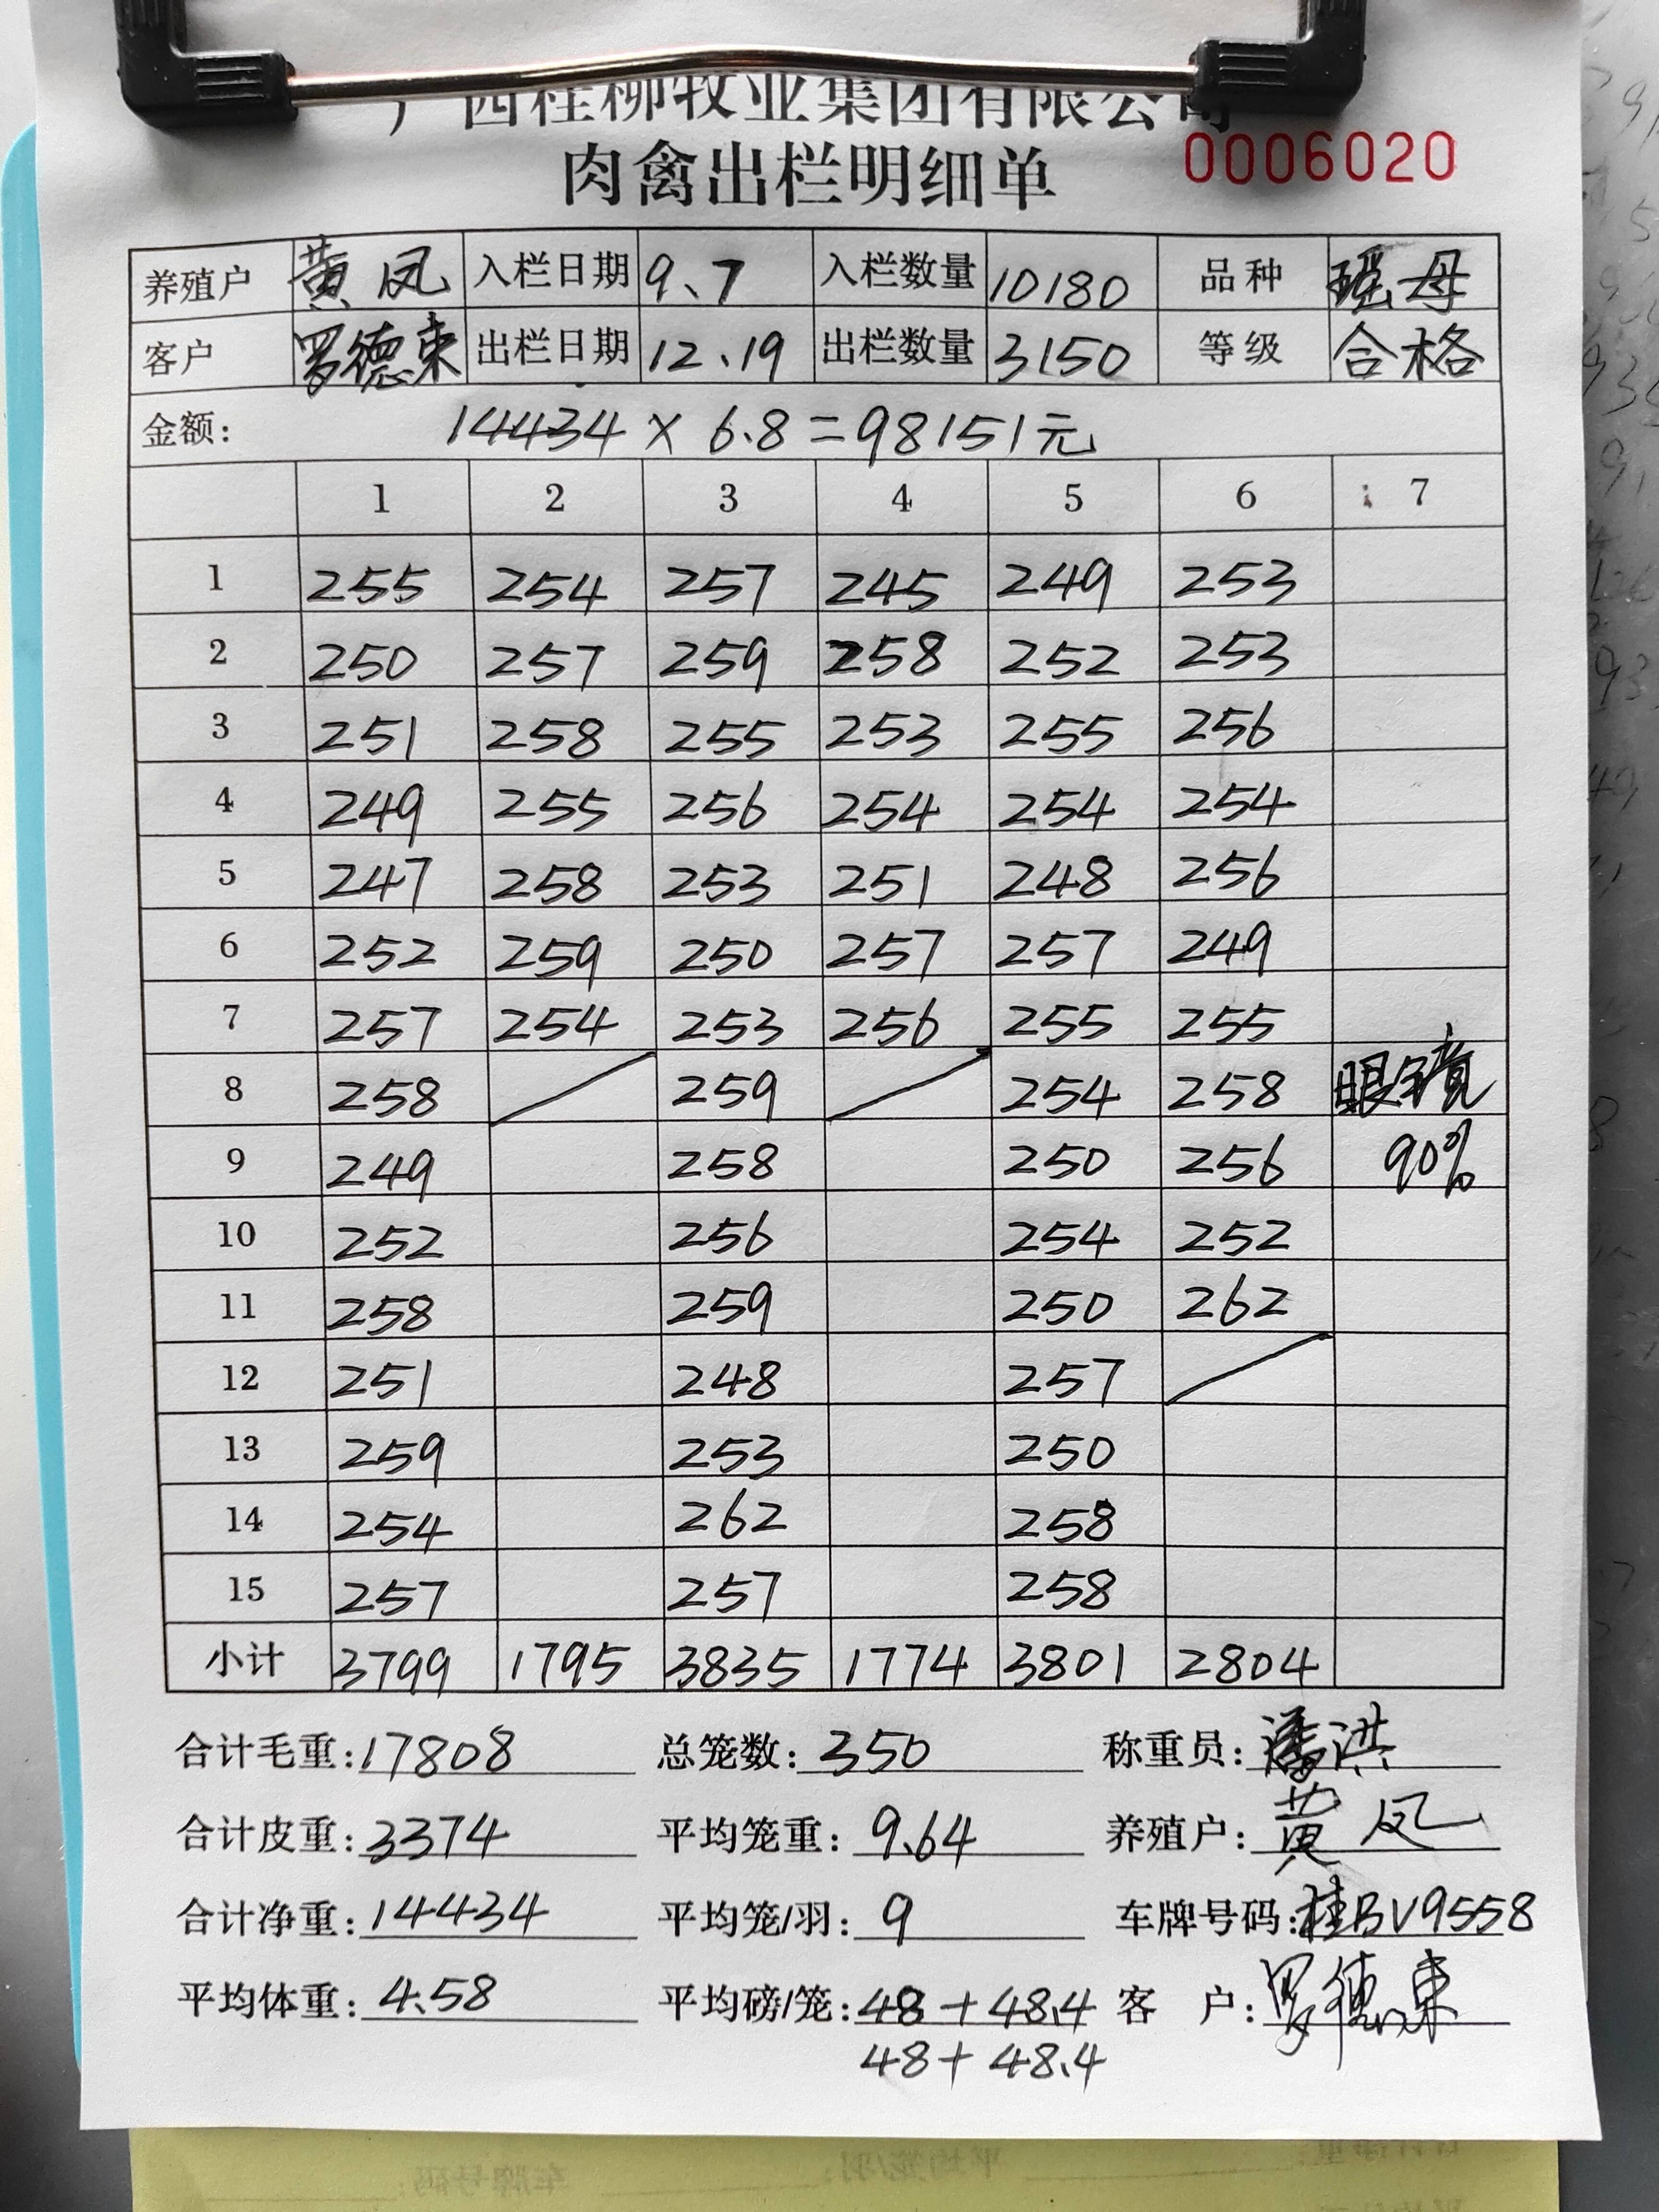 广西桂柳牧业集团有限公司
肉禽出栏明细单 0006020
养殖户 黄凤 入栏日期 9.7 入栏数量 10180 品种 瑶母
客户 罗德東 出栏日期 12.19 出栏数量 3150 等级 合格
金额: 14434 × 6.8=98151元
1 2 3 4 5 6 7
1 255 254 257 245 249 253
2 250 257 259 258 252 253
3 251 258 255 253 255 256
4 249 255 256 254 254 254
5 247 258 253 251 248 256
6 252 259 250 257 257 249
7 257 254 253 256 255 255
8 258 259 254 258 眼镜
9 249 258 250 256 90%
10 252 256 254 252
11 258 259 250 262
12 251 248 257
13 259 253 250
14 254 262 258
15 257 257 258
小计 3799 1795 3835 1774 3801 2804
合计毛重:17808 总笼数:350 称重员:潘洪
合计皮重:3374 平均笼重:9.64 养殖户:黄凤
合计净重:14434 平均笼/羽:9 车牌号码:桂BV9558
平均体重:4.58 平均磅/笼:48+48.4 客 户:罗德東
48+48.4